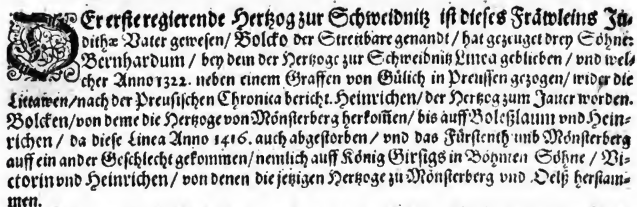 DEr erste regierende Hertzog zur Schweidnitz ist dieses Fräwleins Ju-
dithæ Vater gewesen/ Bolcko der Streitbare genandt/ hat gezeuget drey Söhne:
Bernhardum/ bey dem der Hertzoge zur Schweidnitz Linea geblieben/ vnd wel-
cher Anno 1322. neben einem Graffen von Gülich in Preussen gezogen/ wider die
Littawen/ nach der Preusischen Chronica bericht. Heinrichen/ der Hertzog zum Jauer worden.
Bolcken/ von deme die Hertzoge von Mönsterberg herkom̃en/ bis auff Boleßlaum vnd Hein-
richen/ da diese Linea Anno 1416. auch abgestorben/ vnd das Fürstenthumb Mönsterberg
auff ein ander Geschlecht gekommen/ nemlich auff König Girsigs in Böhmen Söhne/ Vi-
ctorin vnd Heinrichen/ von denen die jetzigen Hertzoge zu Mönsterberg vnd Oelß herstam-
men.